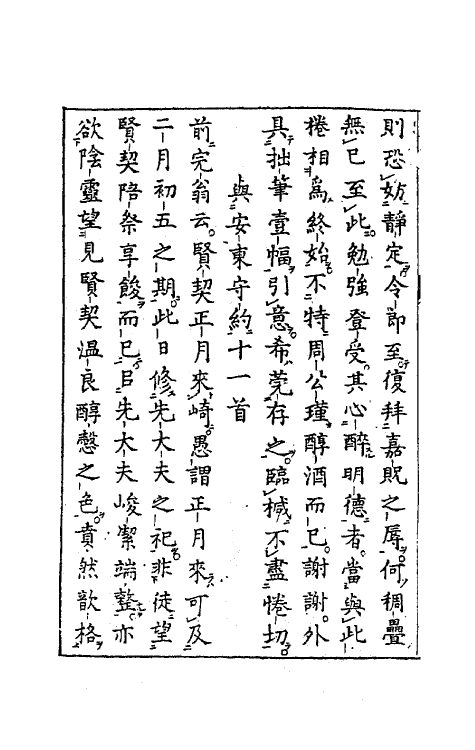 則恐妨靜定令節至復拜嘉貺之辱何稠疊
無已至此勉強登受其心醉明德者當與此
棬相為終始不特周公瑾醇酒而已謝謝外
具拙筆壹幅引意希莞存之臨椷不盡惓切
與安東守約十一首
前完翁云賢契正月來崎愚謂正月來可及
二月初五之期此日修先大夫之祀非徒望
賢契陪祭享餕而已㠯先大夫峻潔端整亦
欲陰靈望見賢契溫良醇愨之色賁然歆格